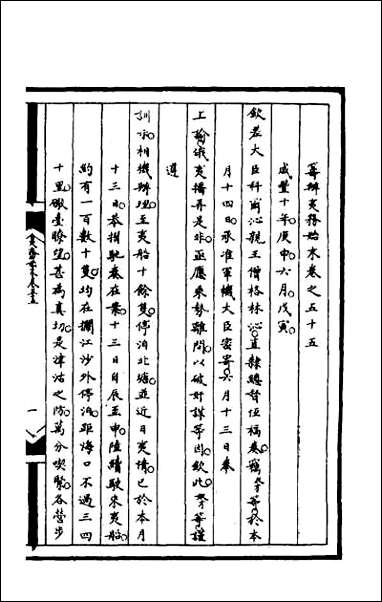 籌辦夷務始末卷之五十五
咸豐十年庚申六月戊寅
欽差大臣科爾沁親王僧格林沁直隸總督恒福奏竊奴才等於本
月十四日承准軍機大臣密寄六月十三日奉
上諭俄夷播弄是非亟應乘勢離間以破奸謀等因欽此奴才等謹
遵
訓示相機辦理至夷船十餘隻停泊北塘並近日夷情已於本月
十三日恭摺馳奏在案十三日自辰至申陸續駛來夷船
約有一百數十隻均在攔江沙外停泊距海口不過三四
十里礮臺瞭望甚為真切是津沽之防萬分喫緊各營步
夷務始末卷五十五
一